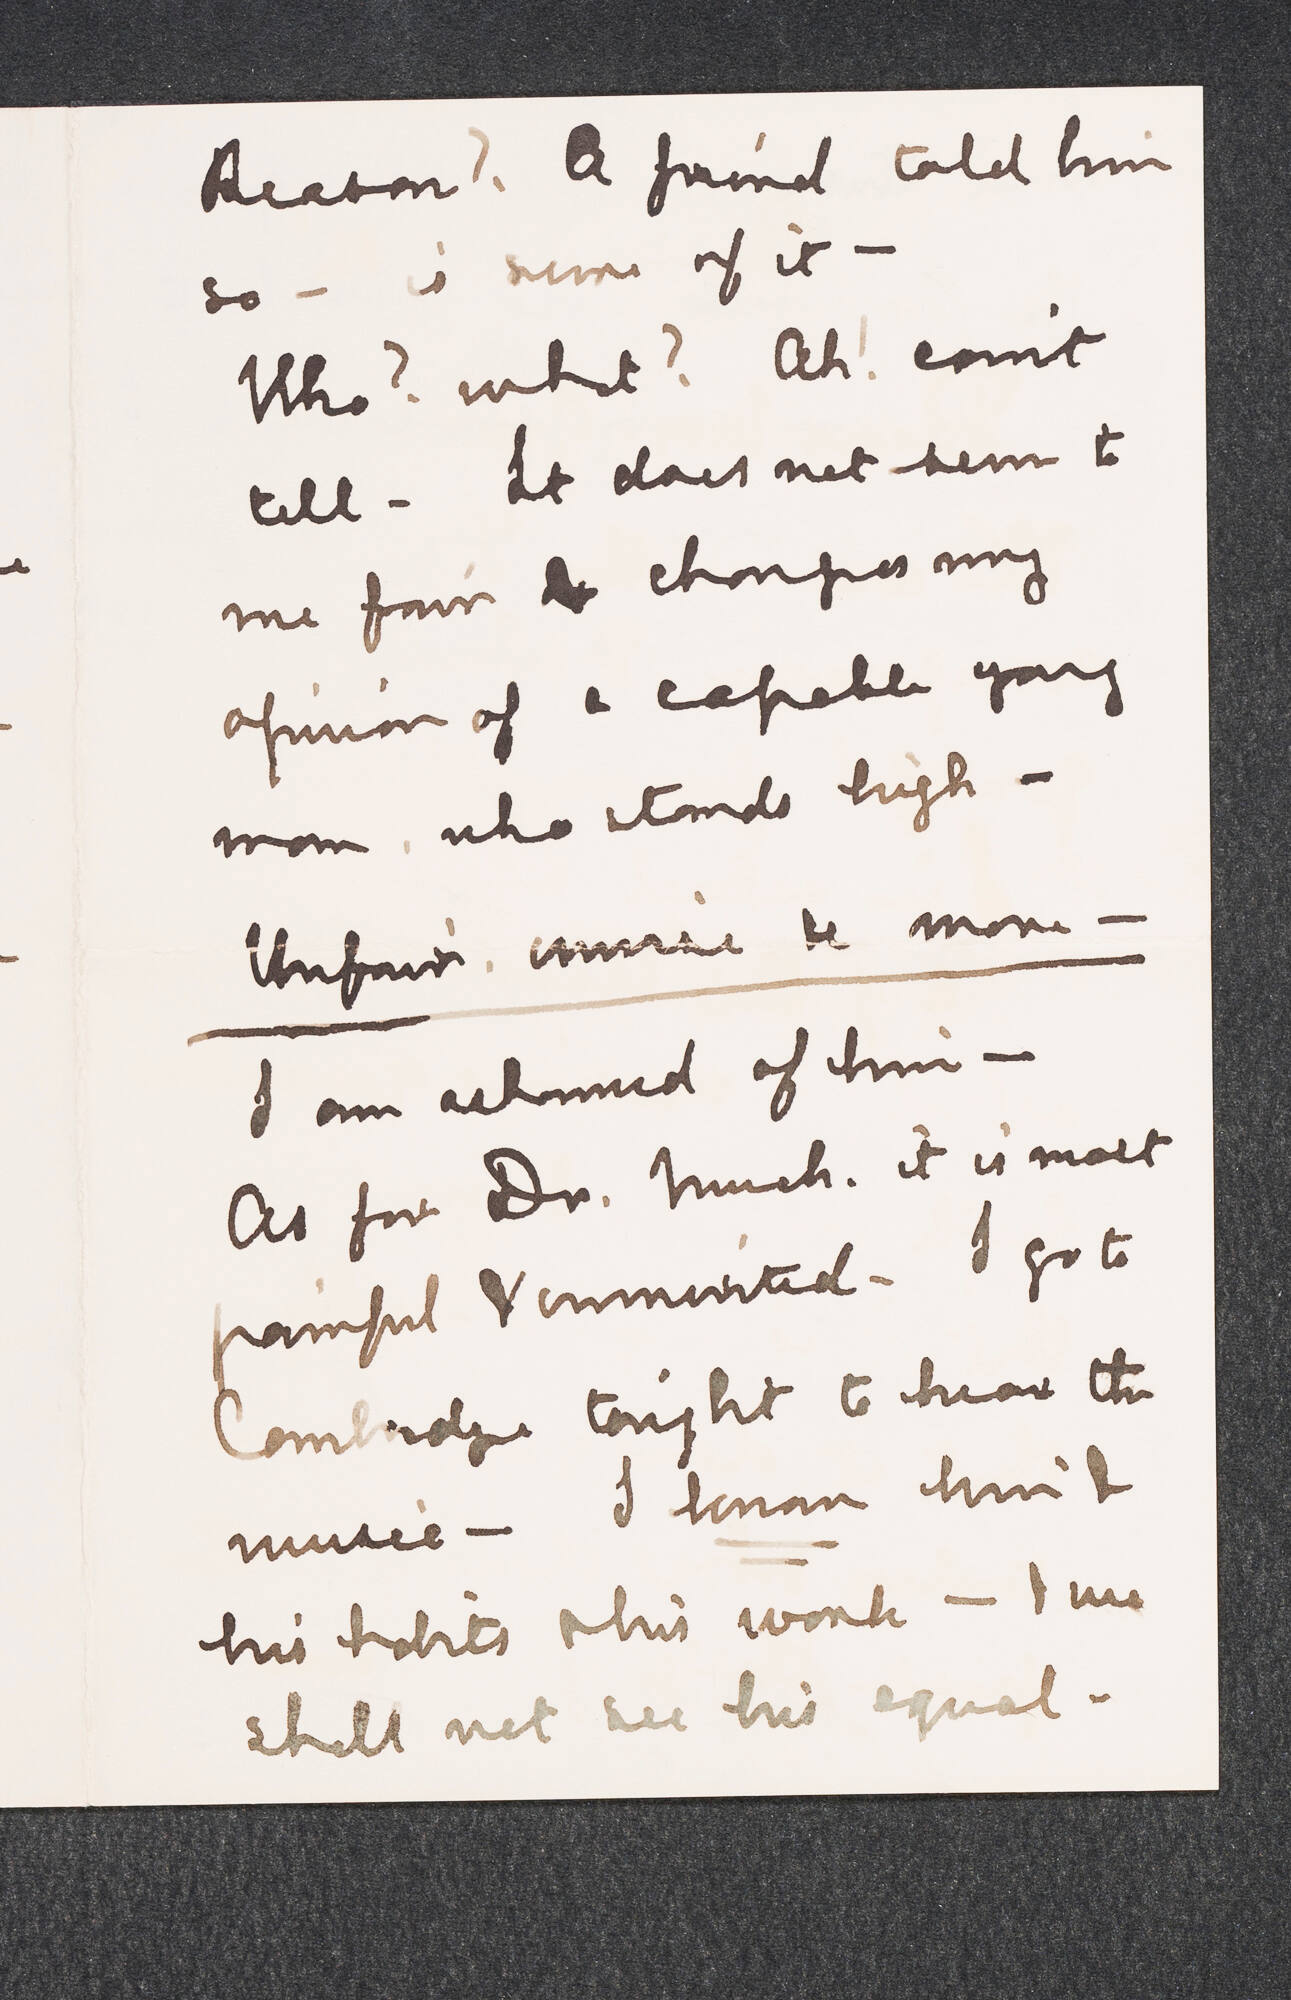 Reason? A friend told him
so – is sure of it –
Who? what? Ah! can't
tell – It does not seem to
me fair to change my
opinion of a capable young
man, who stands high –
Unfair, unwise & more –
I am ashamed of him –
As for Dr. Much. it is most
painful & unmerited – I go to
Cambridge tonight to hear the
music – I know him &
his habits & his work – & we
shall not see his equal –